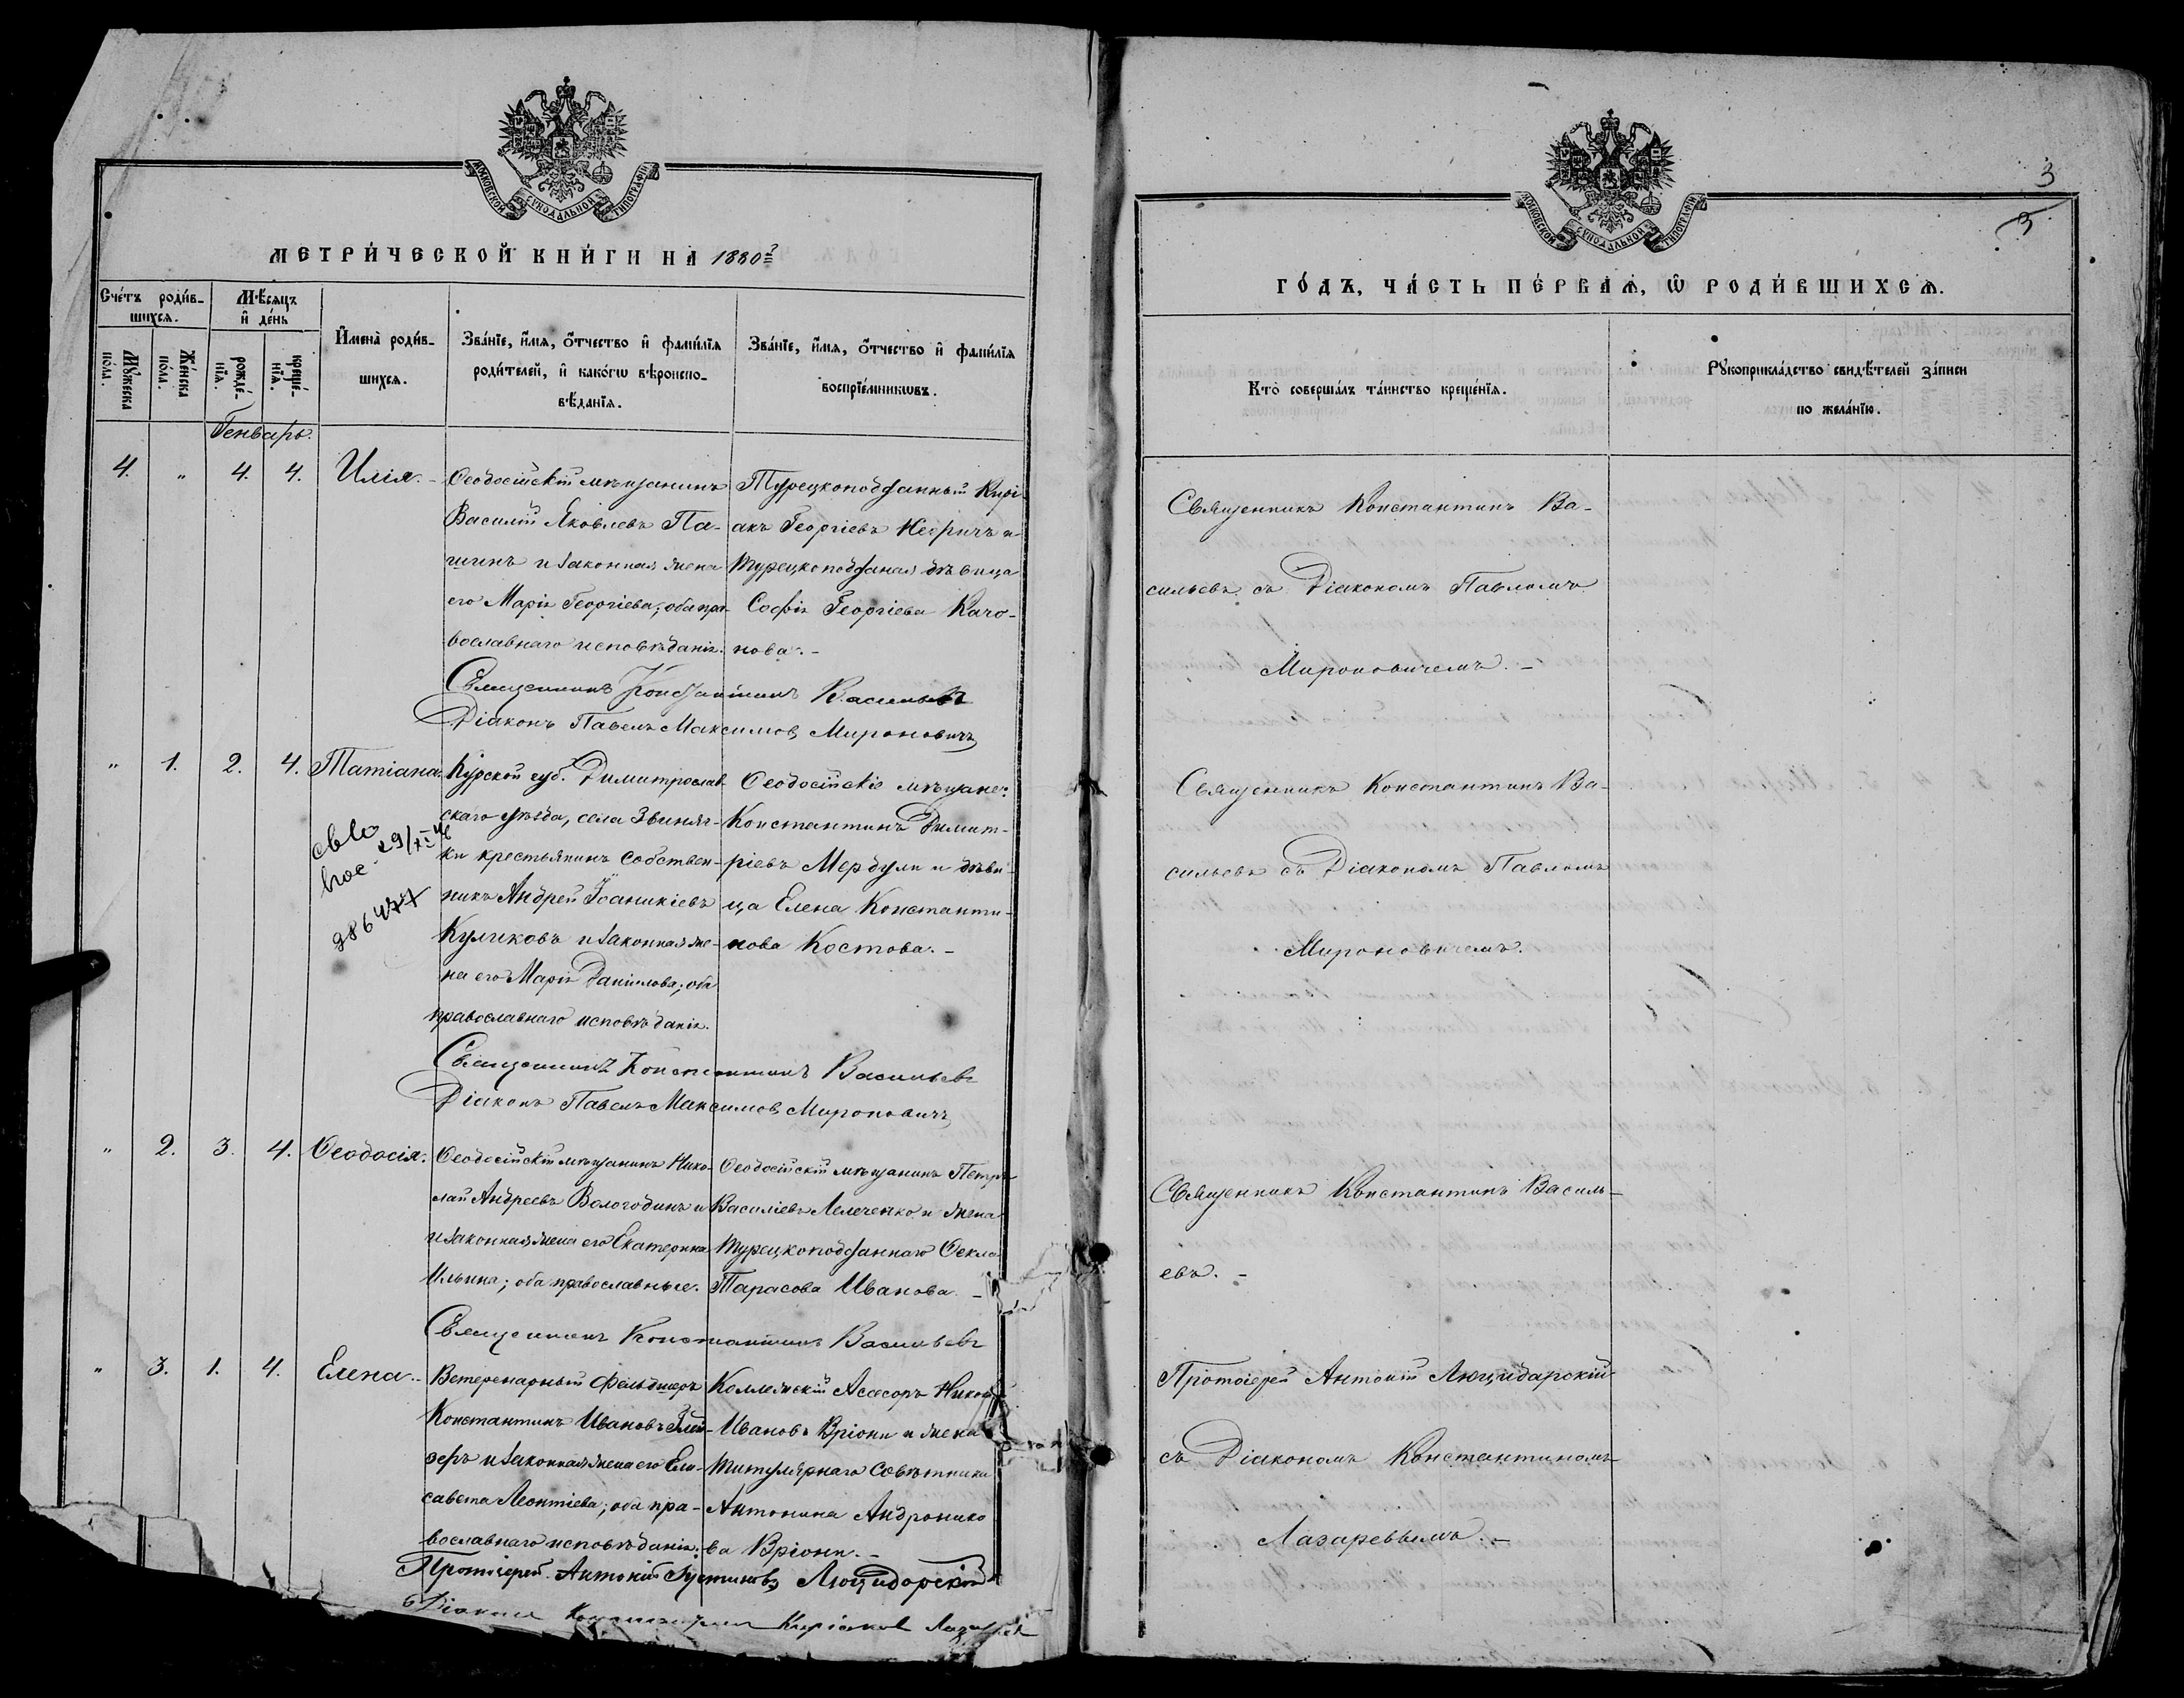 МОСКОВСКОЙ СѴНОДАЛЬНОЙ ТИПОГРАФІИ
МЕТРИ́ЧЕСКОЙ КНИ́ГИ НА 1880й
Сче́тъ роди́в-
шихсѧ.
Мѣ́сѧцъ
и҆ де́нь
Мꙋ́жеска
по́ла.
Же́нска
по́ла.
рожде́-
нїѧ.
креще́-
нїѧ.
И҆мена̀ роди́в-
шихсѧ.
Зва́нїе, и҆́мѧ, ѻ҆́тчество и҆ фами́лїѧ
роди́телей, и҆ како́гѡ вѣроиспо-
вѣ́данїѧ.
Зва́нїе, и҆́мѧ, ѻ҆́тчество и҆ фами́лїѧ
воспрїе́мникѡвъ.
Генварь.
4. " 4. 4. Илія.
Ѳеодосійскій мѣщанинъ
Василій Яковлевъ Па-
шинъ и законная жена
его Марія Георгіева; оба пра-
вославнаго исповѣданія.
Турецкоподданный Кирі-
акъ Георгіевъ и
турецкоподданая дѣвица
Софія Георгіева Качо-
нова.-
Священникъ Константинъ Васильевъ
Діаконъ Павелъ Максимовъ Мироновичъ
" 1. 2. 4. Татіана.
св-во
29/XI-46
986477
Курской губ. Димитрослав-
скаго уѣзда, села Звиняч-
ки крестьянинъ собствен-
никъ Андрей Іоаникіевъ
Куликовъ и законная же-
на его Марія Даніилова; оба
православнаго исповѣданія.
Ѳеодосійскіе мѣщане:
Константинъ Димит-
ріевъ Мердули и дѣви-
ца Елена Константи-
нова Костова.-
Священникъ Константинъ Васильевъ
Діаконъ Павелъ Максимовъ Мироновичъ
" 2. 3. 4. Ѳеодосія.
Ѳеодосійскій мѣщанинъ Нико-
лай Андреевъ Вологодинъ и
и законная жена его Екатерина
Ильина; оба православные.
Ѳеодосійскій мѣщанинъ Петръ
Василіевъ Лелеченко и жена
турецкоподданнаго Ѳекла
Тарасова Иванова.-
Священникъ Константинъ Васильевъ
" 3. 1. 4. Елена.-
Ветеренарный фельдшеръ
Константинъ Ивановъ
и законная жена его Ели-
савета Леонтіева; оба пра-
вославнаго исповѣданія.
Коллежскій Асесоръ
Ивановъ Вріони и жена
титулярнаго совѣтника
Антонина Андронико
ва Вріони.-
Протоіерей Антоній Люцидарскій
Діаконъ Константинъ Киріаковъ
3
3
МОСКОВСКОЙ СѴНОДАЛЬНОЙ ТИПОГРАФІИ
ГО́ДЪ, ЧА́СТЬ ПЕ́РВАѦ, Ѡ҆ РОДИ́ВШИХСѦ.
Кто̀ соверша́лъ та́инство креще́нїѧ.
Рꙋкоприкла́дство свидѣ́телей за́писи
по жела́нїю.
Священникъ Константинъ Ва-
сильевъ съ Діакономъ Павломъ
Мироновичемъ.-
Священникъ Константинъ Ва-
сильевъ съ Діакономъ Павломъ
Мироновичемъ.
Священникъ Константинъ Василь-
евъ.-
Протоіерей Антоній Люцидарскій
съ Діакономъ Константиномъ
Лазаревымъ.-